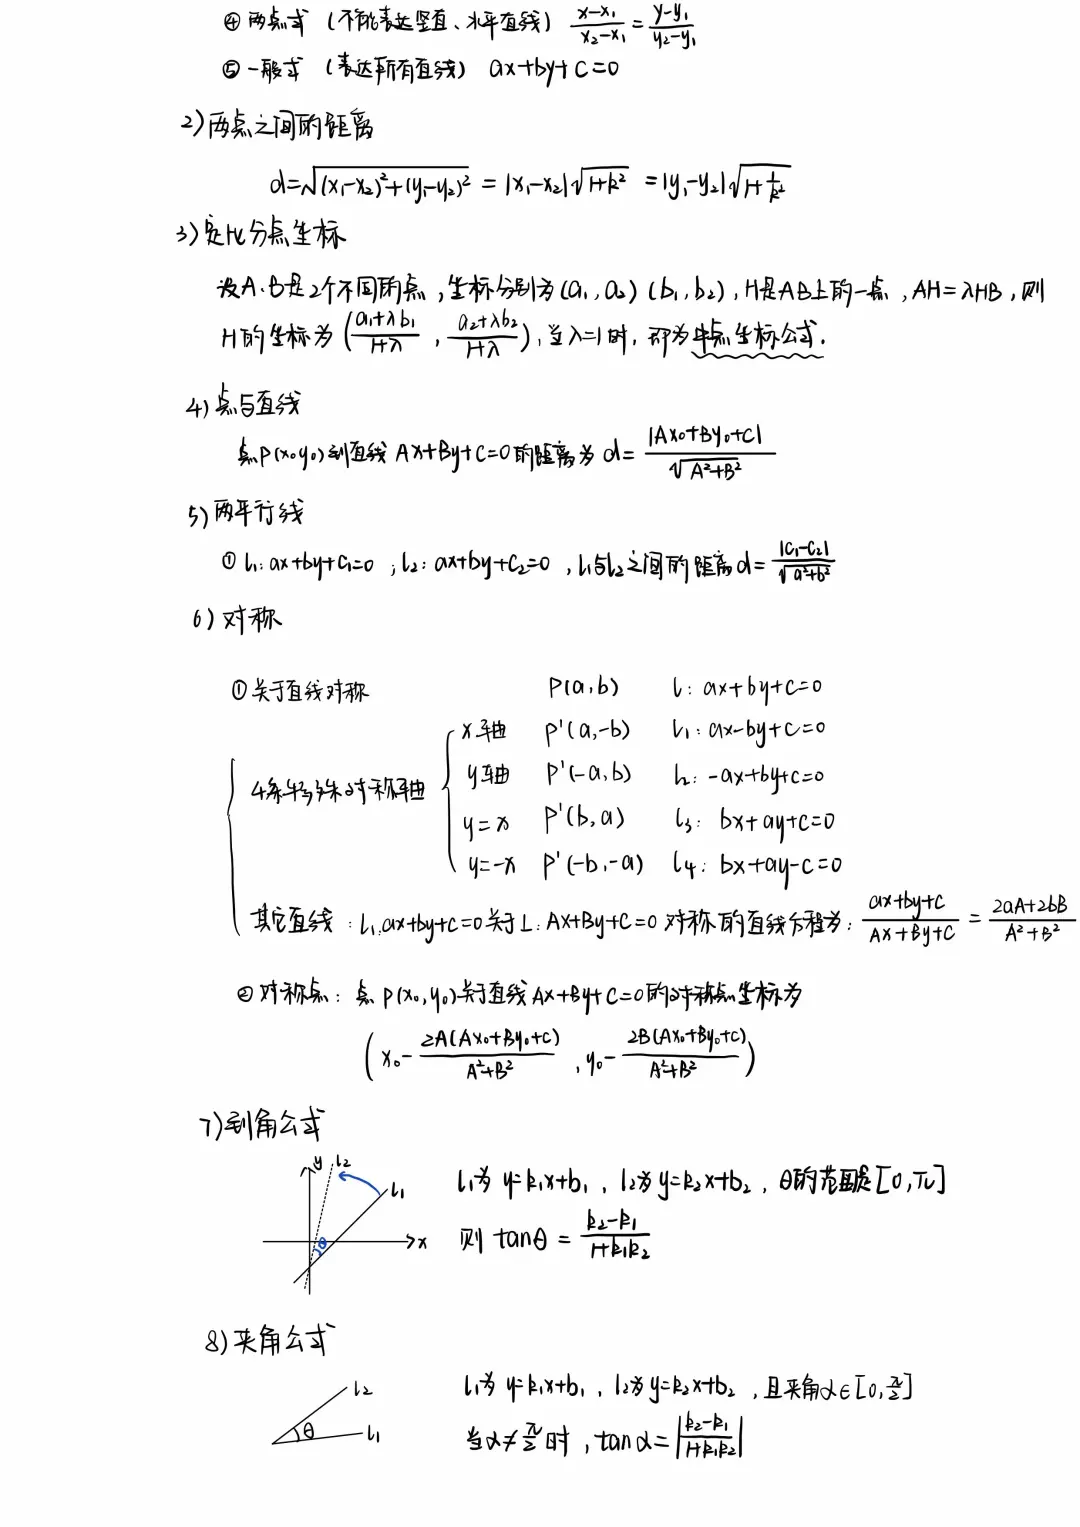 ④ 两点式 (不能表达竖直、水平直线) \frac{x-x_1}{x_2-x_1}=\frac{y-y_1}{y_2-y_1}
⑤ 一般式 (表达所有直线) ax+by+c=0
2) 两点之间的距离
d=\sqrt{(x_1-x_2)^2+(y_1-y_2)^2} = |x_1-x_2|\sqrt{1+k^2} = |y_1-y_2|\sqrt{1+\frac{1}{k^2}}
3) 定比分点坐标
设A、B是2个不同的点,坐标分别为(a_1,a_2) (b_1,b_2),H是AB上的一点,AH=λHB,则
H的坐标为 (\frac{a_1+λb_1}{1+λ}, \frac{a_2+λb_2}{1+λ}),当λ=1时,即为中点坐标公式.
4) 点与直线
点P(x_0,y_0)到直线Ax+By+C=0的距离为 d=\frac{|Ax_0+By_0+C|}{\sqrt{A^2+B^2}}
5) 两平行线
① l_1: ax+by+c_1=0 ; l_2: ax+by+c_2=0 , l_1与l_2之间的距离d=\frac{|c_1-c_2|}{\sqrt{a^2+b^2}}
6) 对称
① 关于直线对称 P(a,b) l: ax+by+c=0
x轴 P'(a,-b) l_1: ax-by+c=0
4条特殊对称轴 y轴 P'(-a,b) l_2: -ax+by+c=0
y=x P'(b,a) l_3: bx+ay+c=0
y=-x P'(-b,-a) l_4: bx+ay-c=0
其它直线:l_1:ax+by+c=0关于L: Ax+By+C=0对称的直线方程为: \frac{ax+by+c}{Ax+By+C} = \frac{2aA+2bB}{A^2+B^2}
② 对称点: 点P(x_0,y_0)关于直线Ax+By+C=0的对称点坐标为
(x_0-\frac{2A(Ax_0+By_0+C)}{A^2+B^2}, y_0-\frac{2B(Ax_0+By_0+C)}{A^2+B^2})
7) 到角公式
y l_2 l_1 θ x
l_1为 y=k_1x+b_1, l_2为y=k_2x+b_2, θ的范围是[0,π]
则 tanθ = \frac{k_2-k_1}{1+k_1k_2}
8) 夹角公式
l_2 θ l_1
l_1为 y=k_1x+b_1, l_2为y=k_2x+b_2, 且夹角α∈[0,\frac{π}{2}]
当α≠\frac{π}{2}时, tanα=|\frac{k_2-k_1}{1+k_1k_2}|